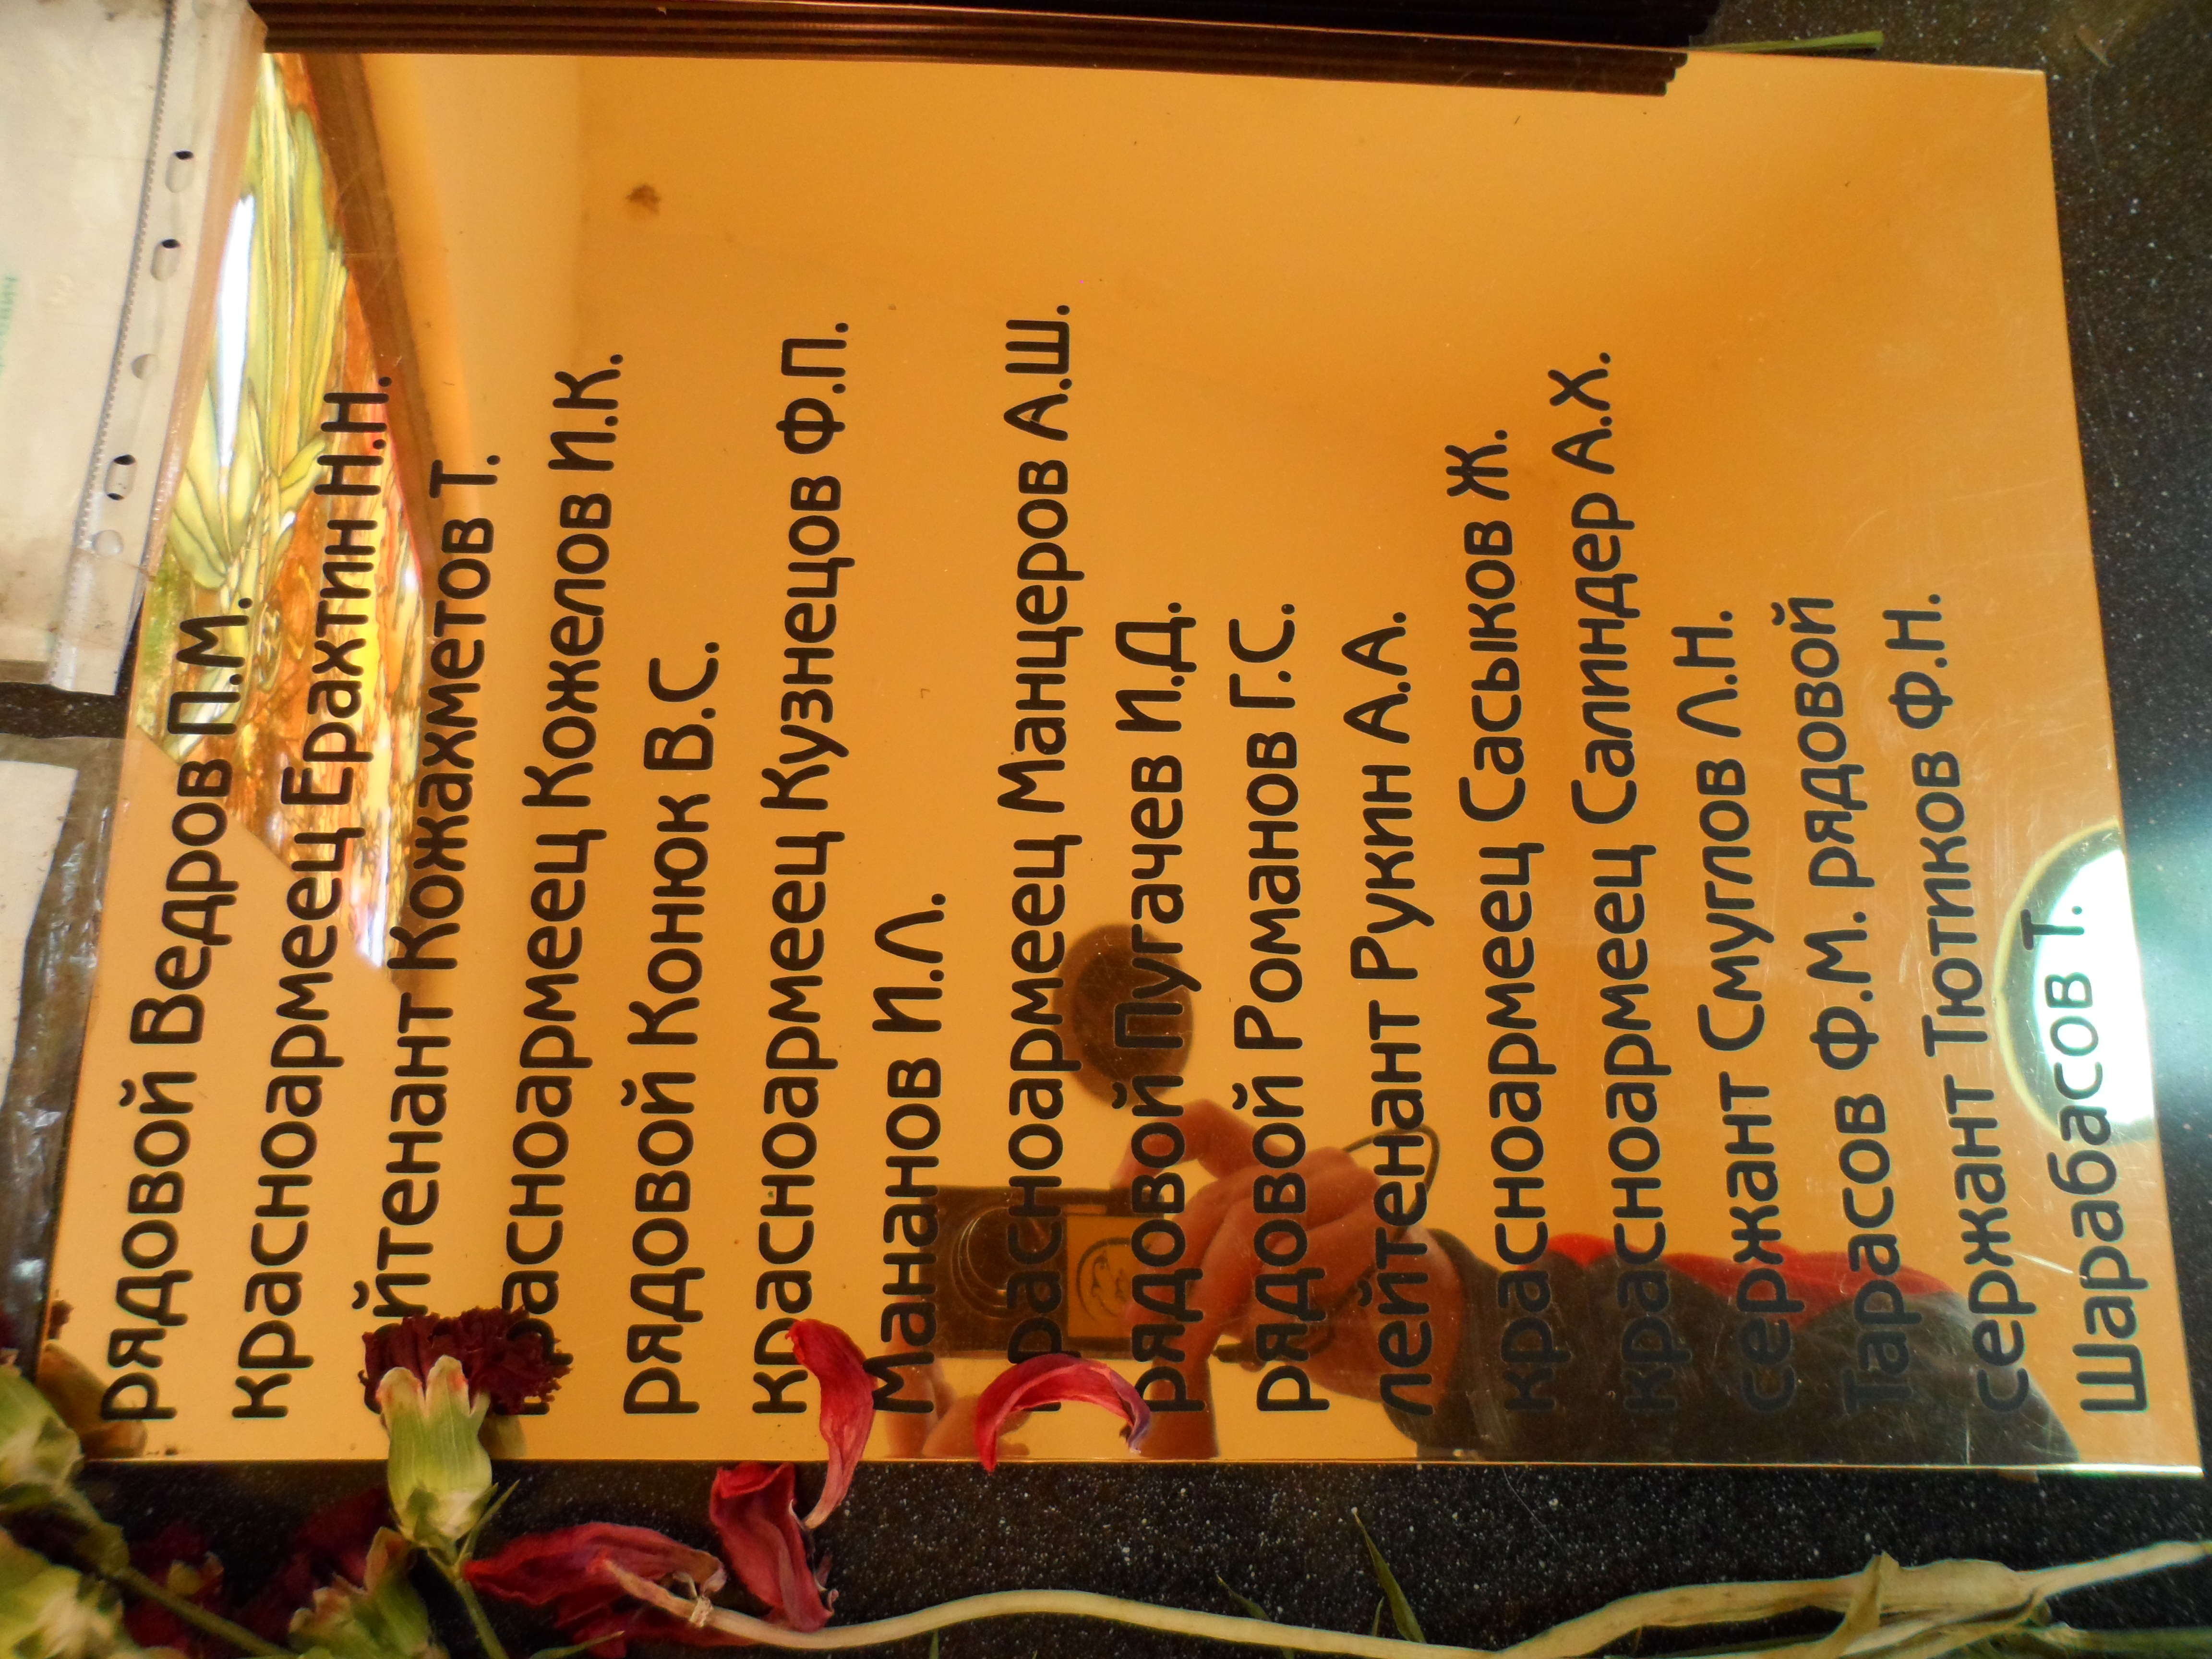 рядовой Ведров П.М.
красноармеец Ерахтин Н.Н.
Кожахметов Т.
красноармеец Кожелов И.К.
рядовой Конюк В.С.
красноармеец Кузнецов Ф.П.
Мананов И.Л.
красноармеец Манцеров А.Ш.
рядовой Пугачев И.Д.
рядовой Романов Г.С.
лейтенант Рукин А.А.
красноармеец Сасыков Ж.
красноармеец Салиндер А.Х.
сержант Смуглов Л.Н.
Тарасов Ф.М. рядовой
сержант Тютиков Ф.Н.
Шарабасов Т.